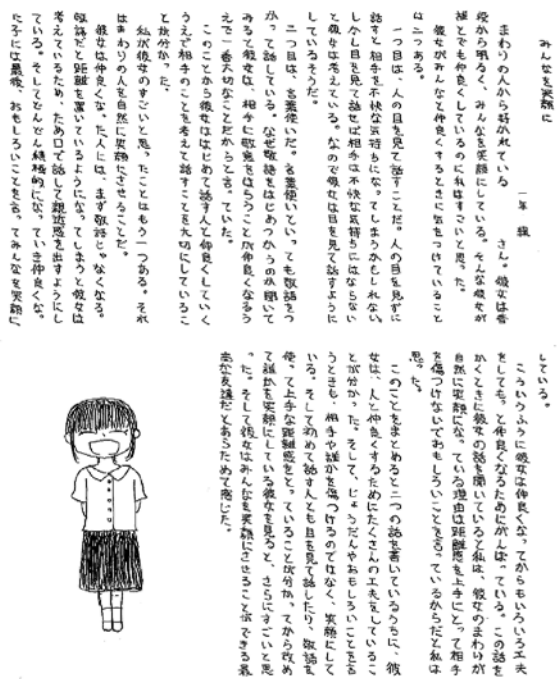 みんなを笑顔に
一年　組
まわりの人から好かれている　　さん。彼女は普
段から明るく、みんなを笑顔にしている。そんな彼女が
誰とでも仲良くしているのに私はすごいと思った。
彼女がみんなと仲良くするときに気をつけていること
は二つある。
一つ目は、人の目を見て話すことだ。人の目を見ずに
話すと相手を不快な気持ちになってしまうかもしれない。
しかし目を見て話せば相手は不快な気持ちにはならない
と彼女は考えている。なので彼女は目を見て話すように
しているそうだ。
二つ目は、言葉使いだ。言葉使いといっても敬語をつ
かって話している。なぜ敬語をはじめつかうのか聞いて
みると彼女は、相手に敬意をはらうことが仲良くなるう
えで一番大切なことだからと言っていた。
このことから彼女ははじめて話す人と仲良くしていく
うえで相手のことを考えて話すことを大切にしているこ
とが分かった。
私が彼女のすごいと思ったことはもう一つある。それ
はまわりの人を自然に笑顔にさせることだ。
彼女は仲良くなった人には、まず敬語じゃなくなる。
敬語だと距離を置いているようになってしまうと彼女は
考えているため、ため口で話して親近感を出すようにし
ている。そしてどんどん積極的になっていき仲良くなっ
た子には最後、おもしろいことを言ってみんなを笑顔に
している。
こういうふうに彼女は仲良くなってからもいろいろ工夫
をしてもっと仲良くなるためにがんばっている。この話を
かくときに彼女の話を聞いていると私は、彼女のまわりが
自然に笑顔になっている理由は距離感を上手にとって相手
を傷つけないでおもしろいことを言っているからだと私は
思った。
このことをまとめると二つの話を書いているうちに、彼
女は、人と仲良くするためにたくさんの工夫をしているこ
とが分かった。そして、じょうだんやおもしろいことを言
うときも、相手や誰かを傷つけるのではなく、笑顔にして
いる。そして初めて話す人とも目を見て話したり、敬語を
使って上手な距離感をとっていることが分かってから改め
て誰かを笑顔にしている彼女を見ると、さらにすごいと思
った。そして彼女はみんなを笑顔にさせることができる最
高な友達だとあらためて感じた。